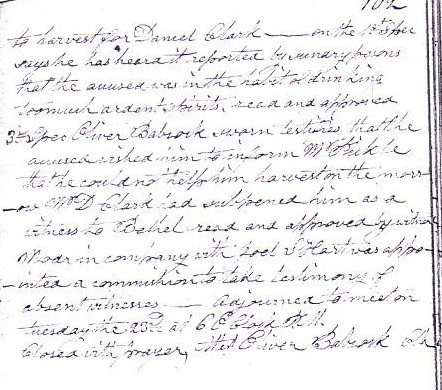 102
to harvest for Daniel Clark — on the 1st Spec
says he has heard it reported by sunary persons
that the accused was in the habit of drinking
too much ardent spirits, read and approved
3d Spec Oliver Babcock sworn testifies that he
accused wished him to inform Mr Pickle
that he could not help him harvest on the morr-
-ow Mr D. Clark had subpened him as a
witness to Bethel read and approved by witness
Modr in company with Joel S Hart was appo-
-inted a commition to take testimony of
absent witnesses — Adjourned to meet on
tuesday the 23d at 6 O Clock P.M.
Closed with prayer, Attest Oliver Babcock Clk